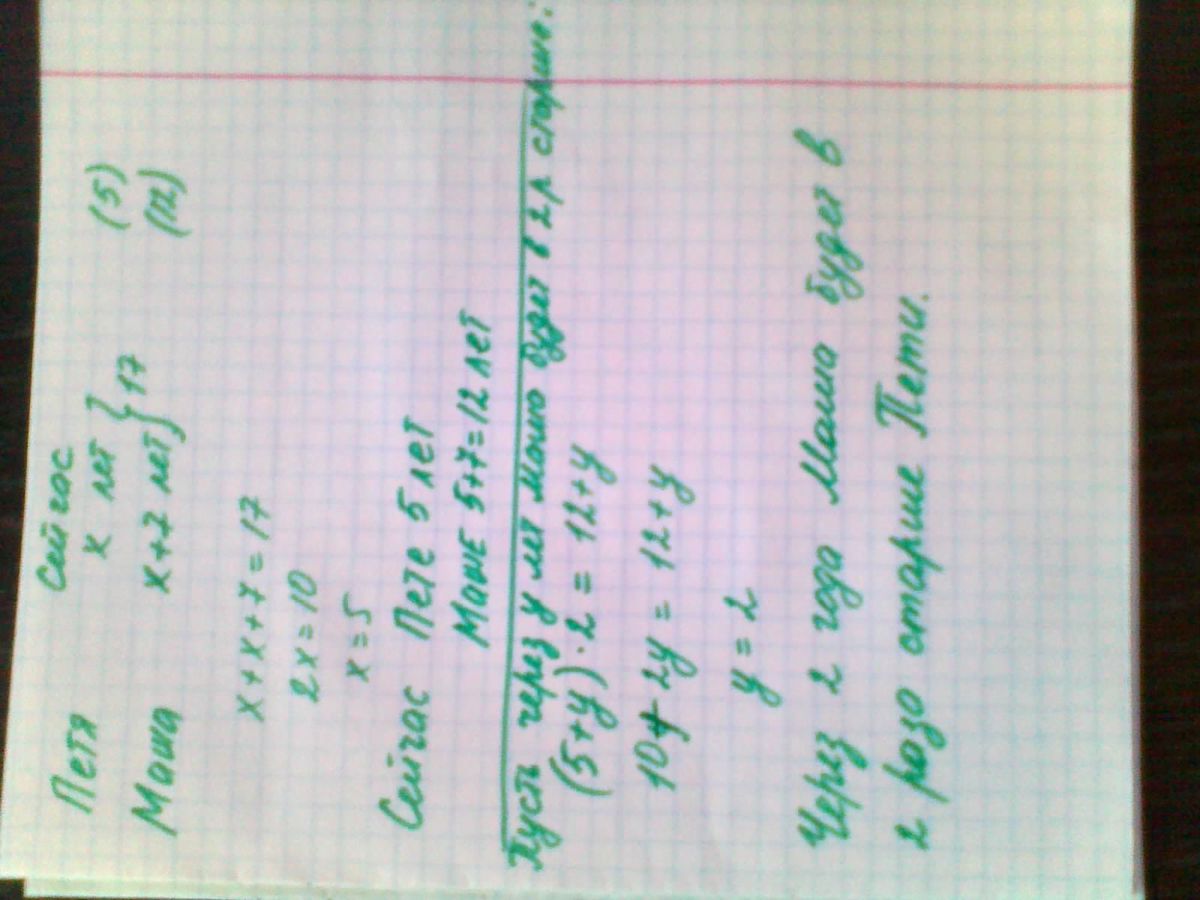 Сейчас
Петя х лет } 17 (5)
Маша х+7 лет (12)
х+х+7=17
2х=10
х=5
Сейчас Пете 5 лет
Маше 5+7=12 лет
Пусть через y лет Маша будет в 2 р старше:
(5+y)·2=12+y
10+2y=12+y
y=2
Через 2 года Маша будет в
2 раза старше Пети.